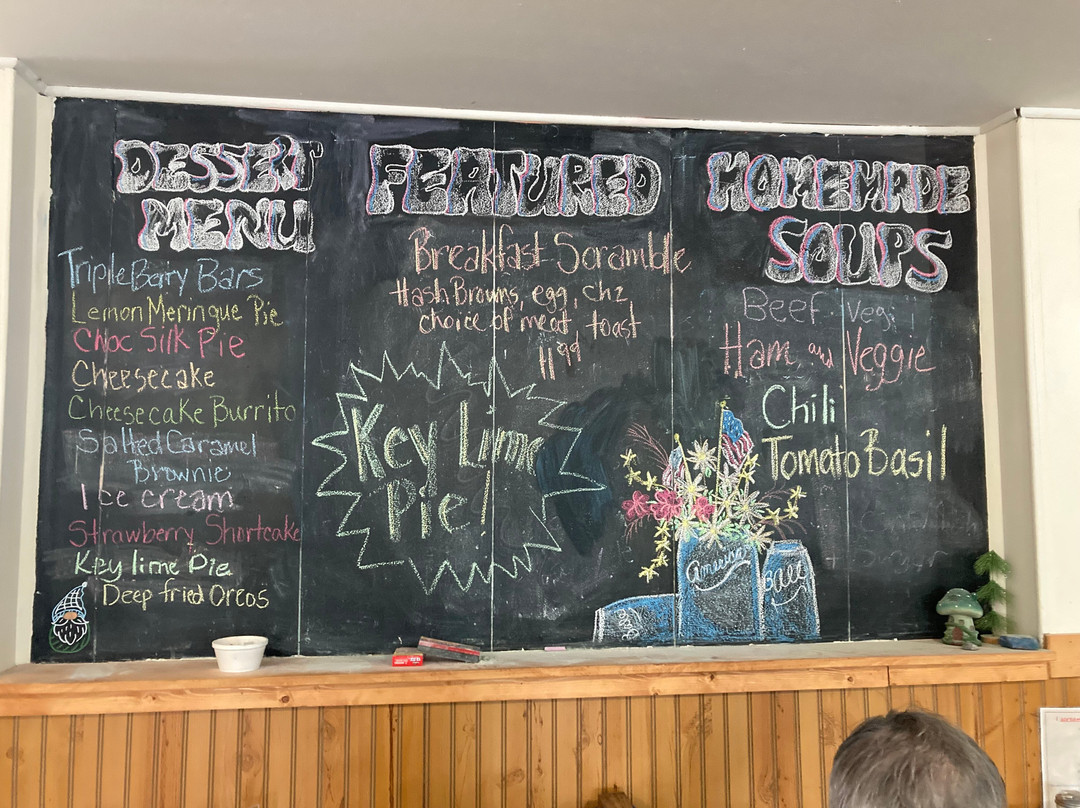 DESSERT
MENU
Triple Berry Bars
Lemon Meringue Pie
Choc Silk Pie
Cheesecake
Cheesecake Burrito
Salted Caramel
Brownie
Ice cream
Strawberry Shortcake
Key lime Pie
Deep fried Oreos
FEATURED
Breakfast Scramble
Hash Browns, egg, chz
choice of meat, toast
11.99
Key Lime
Pie!
HOMEMADE
SOUPS
Beef Vegi
Ham and Veggie
Chili
Tomato Basil
Ball